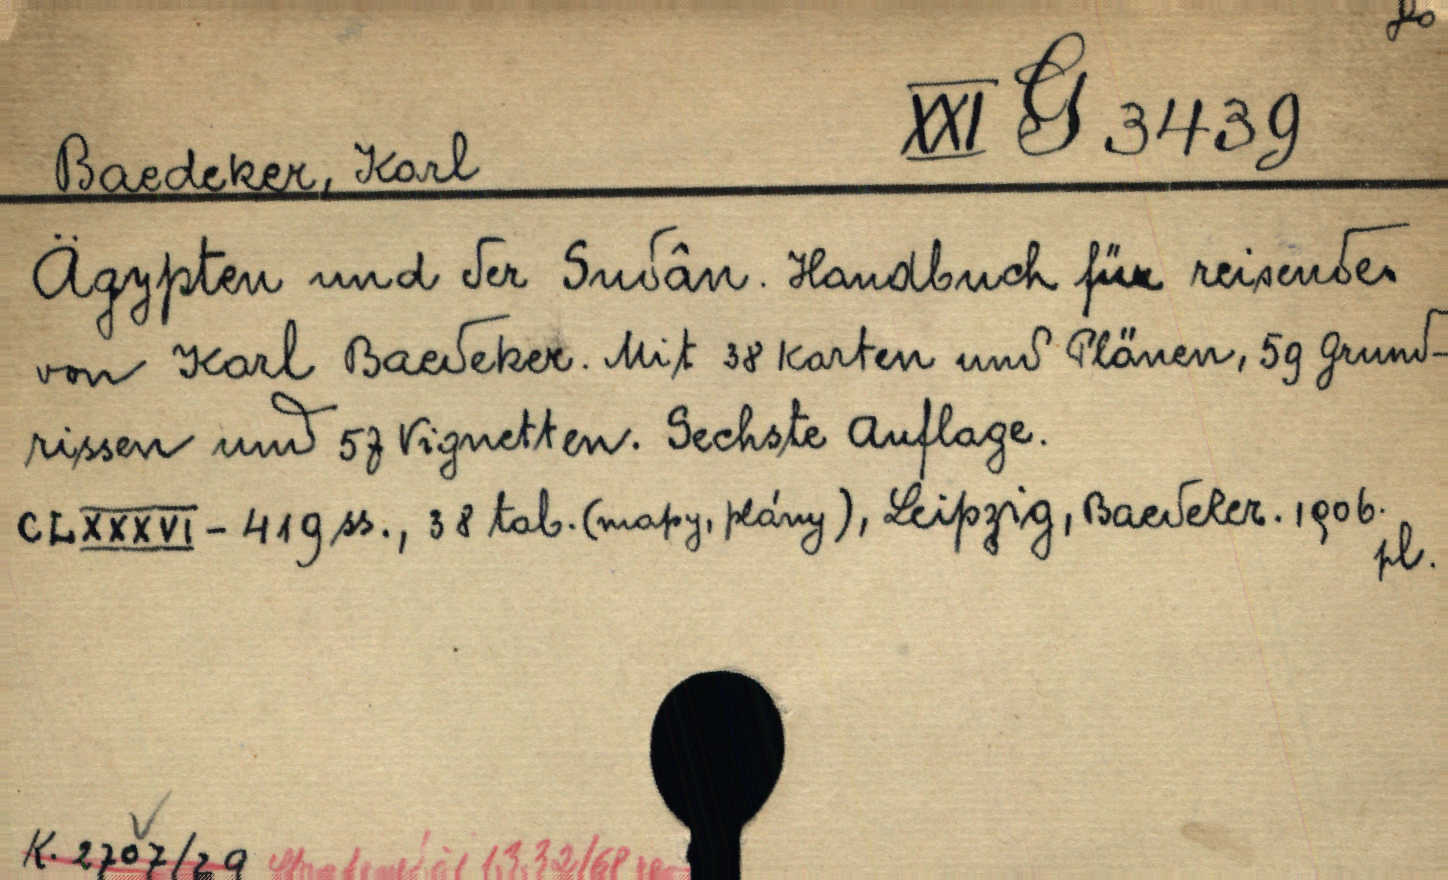 XXI G 3439
Baedeker, Karl
Ägypten und der Sudân. Handbuch für reisende
von Karl Baedeker. Mit 38 Karten und Plänen, 59 Grund-
rissen und 57 Vignetten. Sechste Auflage.
CLXXXVI - 419 ss., 38 tab. (mapy, plány), Leipzig, Baedeker. 1906.
pl.
K. 2707/29